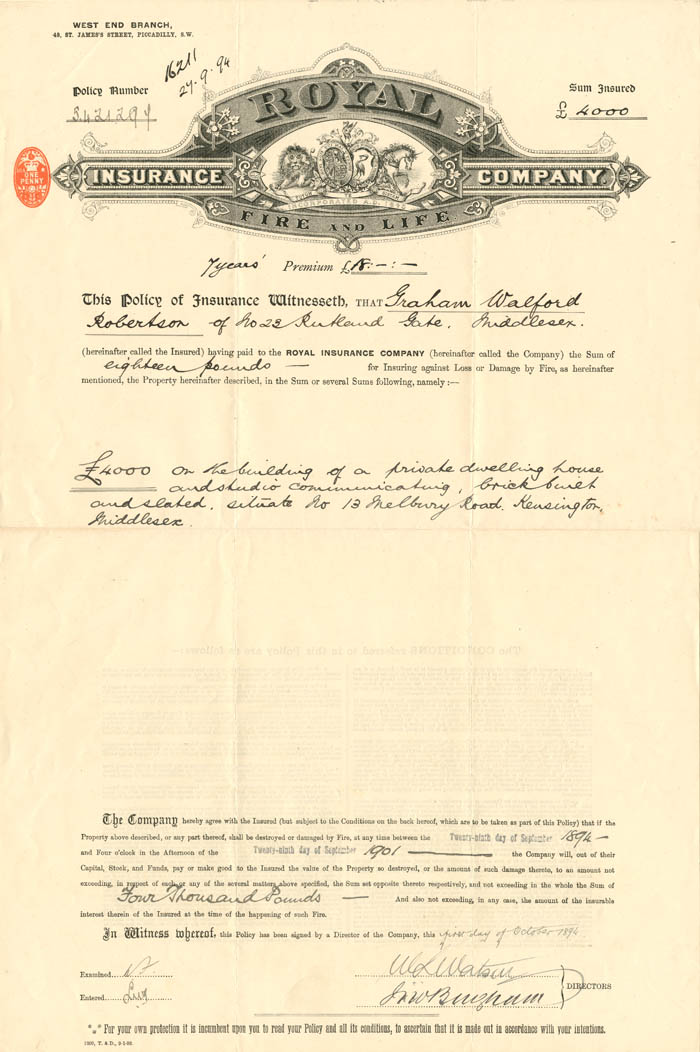 WEST END BRANCH,
49, ST. JAMES'S STREET, PICCADILLY, S.W.
16211
27.9.94
Policy Number
5421297
Sum Insured
£ 4000
ROYAL
INSURANCE COMPANY
FIRE AND LIFE
ONE PENNY
7 years' Premium £18:-:-
This Policy of Insurance Witnesseth, THAT Graham Walford
Robertson of No 23 Rutland Gate, Middlesex.
(hereinafter called the Insured) having paid to the ROYAL INSURANCE COMPANY (hereinafter called the Company) the Sum of
eighteen pounds — for Insuring against Loss or Damage by Fire, as hereinafter
mentioned, the Property hereinafter described, in the Sum or several Sums following, namely:—
£4000 on the building of a private dwelling house
and studio communicating, brick built
and slated, situate No 13 Melbury Road, Kensington,
Middlesex.
The CONDITIONS referred to in this Policy are as follows:—
The Company hereby agree with the Insured (but subject to the Conditions on the back hereof, which are to be taken as part of this Policy) that if the
Property above described, or any part thereof, shall be destroyed or damaged by Fire, at any time between the Twenty-ninth day of September 1894 —
and Four o'clock in the Afternoon of the Twenty-ninth day of September 1901 — the Company will, out of their
Capital, Stock, and Funds, pay or make good to the Insured the value of the Property so destroyed, or the amount of such damage thereto, to an amount not
exceeding, in respect of each or any of the several matters above specified, the Sum set opposite thereto respectively, and not exceeding in the whole the Sum of
Four Thousand Pounds — And also not exceeding, in any case, the amount of the insurable
interest therein of the Insured at the time of the happening of such Fire.
In Witness whereof, this Policy has been signed by a Director of the Company, this first day of October 1894
Examined
Entered
WL Watson
Jno Bingham
DIRECTORS
*** For your own protection it is incumbent upon you to read your Policy and all its conditions, to ascertain that it is made out in accordance with your intentions.